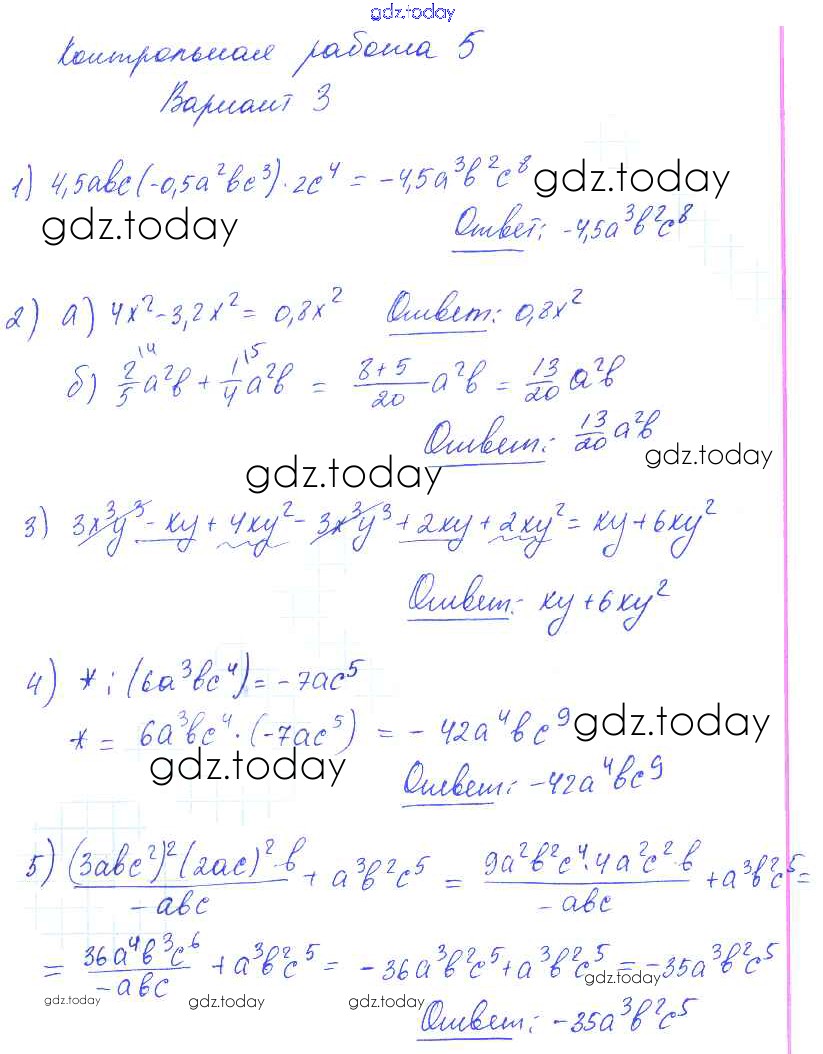 gdz.today
Контрольная работа 5
Вариант 3
1) 4,5abc(-0,5a²bc³)·2c⁴ = -4,5a³b²c⁸ gdz.today
gdz.today Ответ: -4,5a³b²c⁸
2) а) 4x²-3,2x² = 0,8x² Ответ: 0,8x²
б) 2/5^{\4} a²b + 1/4^{\5} a²b = (8+5)/20 a²b = 13/20 a²b
Ответ: 13/20 a²b
gdz.today gdz.today
3) 3x³y³ - xy + 4xy² - 3x³y³ + 2xy + 2xy² = xy + 6xy²
Ответ: xy + 6xy²
4) * : (6a³bc⁴) = -7ac⁵
* = 6a³bc⁴·(-7ac⁵) = -42a⁴bc⁹ gdz.today
gdz.today Ответ: -42a⁴bc⁹
5) (3abc²)²(2ac)²·b/-abc + a³b²c⁵ = 9a²b²c⁴·4a²c²·b/-abc + a³b²c⁵ =
= 36a⁴b³c⁶/-abc + a³b²c⁵ = -36a³b²c⁵ + a³b²c⁵ = -35a³b²c⁵
gdz.today gdz.today gdz.today gdz.today
Ответ: -35a³b²c⁵